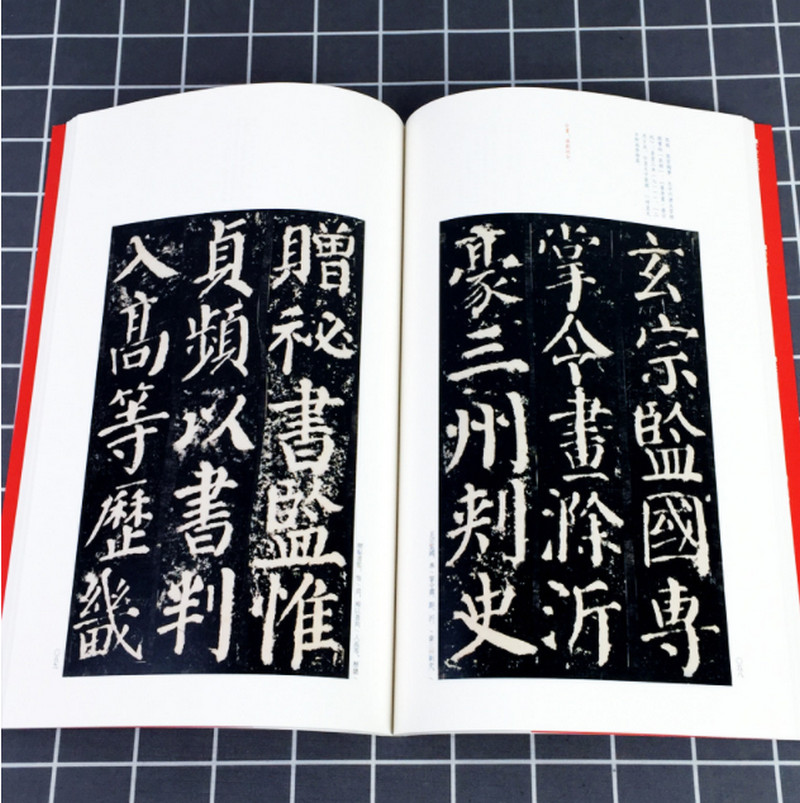 玄宗監國專
掌令畫滁沂
豪三州刾史
贈祕書監惟
貞頻以書判
入高等歷畿